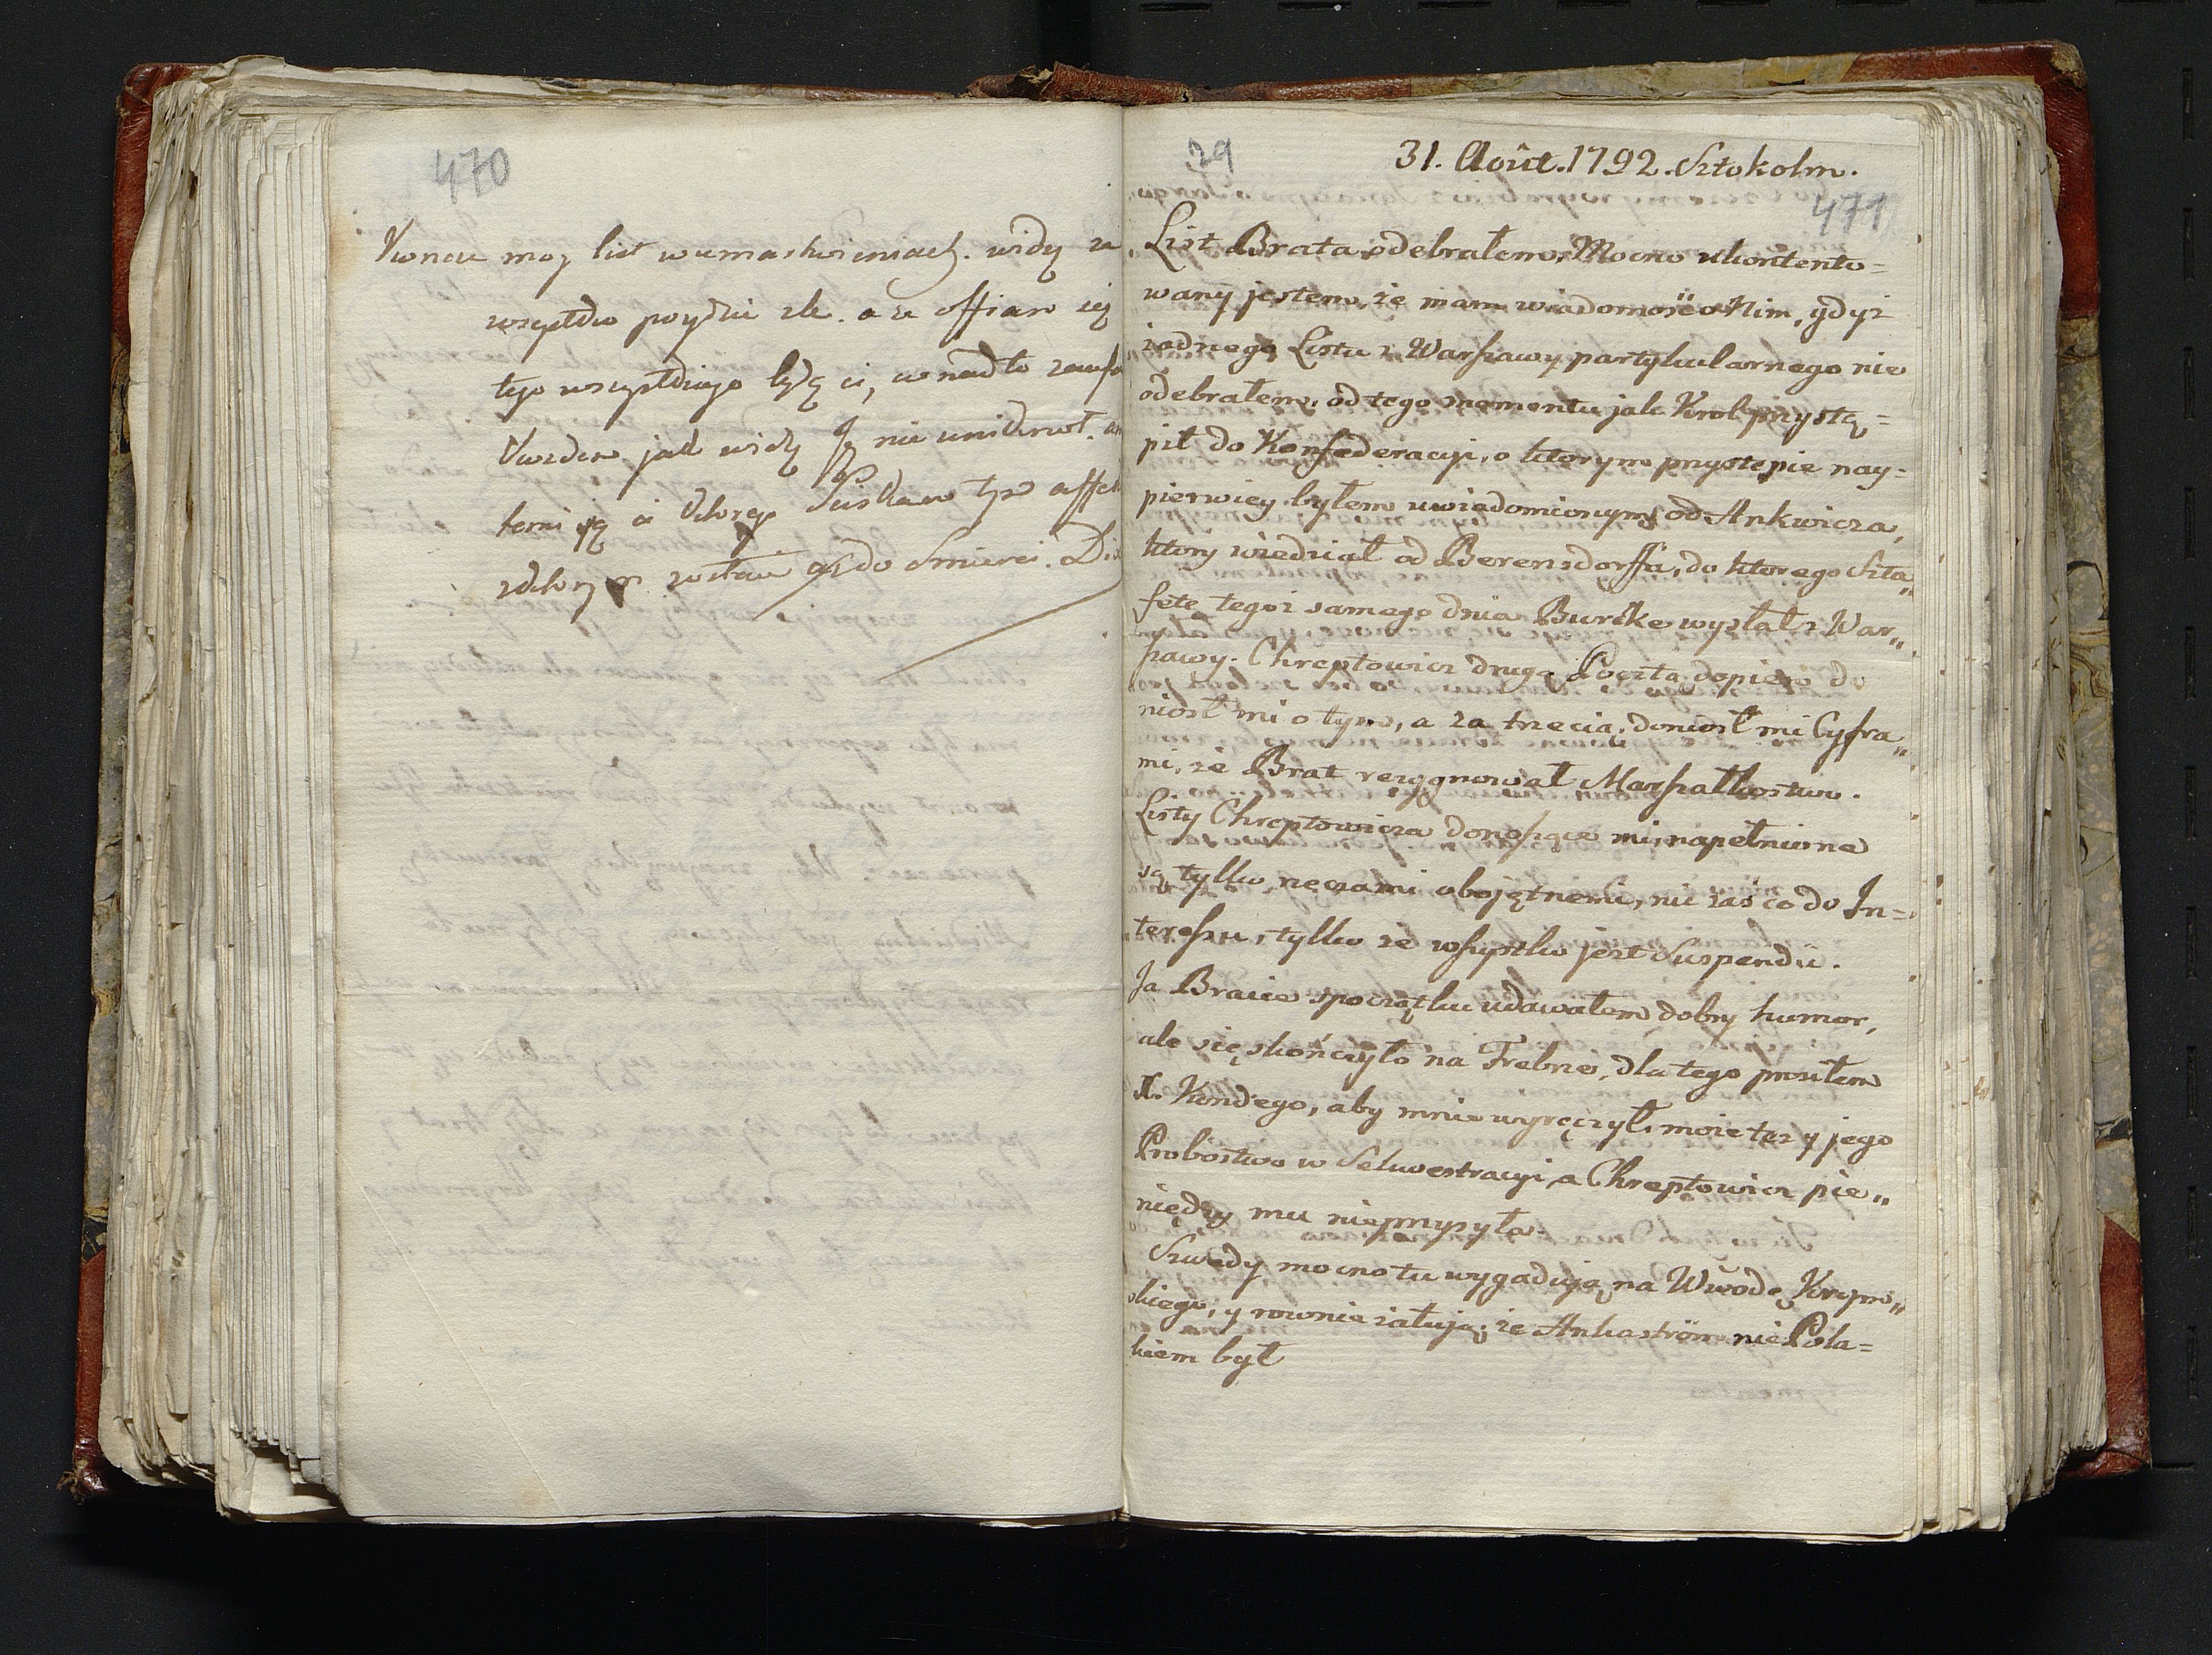 470
Koncu moy list w umartwieniach. widzę ze
wszystko poydzie zle. a ze offiarą ięg
tego wszystkiego będę
jak widzę nie uniknoł.
do Smierci.
29
31. Août. 1792. Sztokolm.
471
List Brata odebrałem. Mocno ukontento=
wany jestem, że mam wiadomość o Nim, gdyż
żadnego Listu z Warszawy partykularnego nie
odebrałem, od tego momentu jak Krol przystą=
pił do Konfederacyi, o ktorym przystępie nay=
pierwiey byłem uwiadomionym od Ankwicza,
ktory wiedział od Berensdorffa, do ktorego Szta„
fetę tegoż samego dnia Burske wysłał z War„
szawy. Chreptowicz drugą Pocztą dopiero do
niosł mi o tym, a za trzecią, doniosł mi Cyfra„
mi, że Brat rezygnował Marszałkostwo.
Listy Chreptowicza donoszące mi, napełnione
są tylko rzeczami obojętnemi, nic zaś co do In=
teressu, tylko że wszystko jest Suspendü.
Ja Bracie zpoczątku udawałem dobry humor,
ale się skończyło na Frebrze, dla tego prosiłem
X. Kundego, aby mnie wyręczył, może też y jego
Probostwo w Sekwestracyi, a Chreptowicz pie„
niędzy mu nieprzysyła.
Szwedy mocno tu wygadują na Wwodę Kryps„
kiego, y rownie żałują, że Ankaström nie Pola=
kiem był